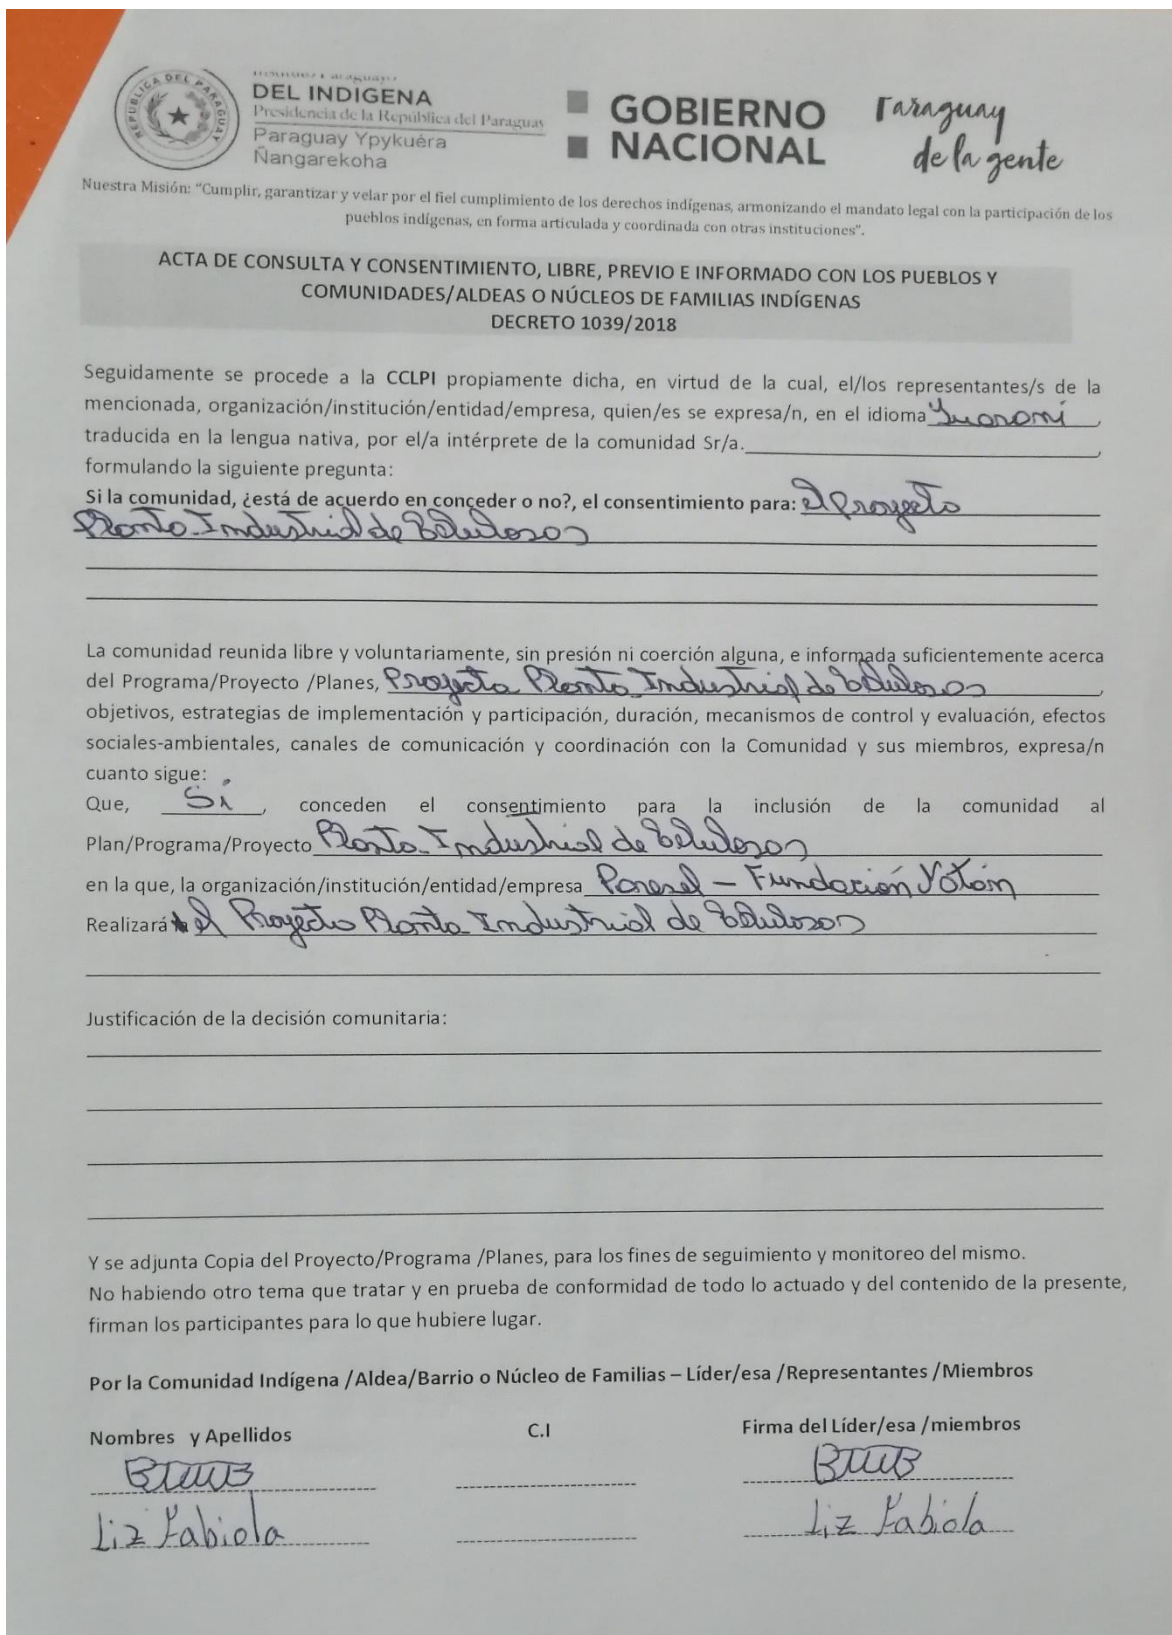 REPUBLICA DEL PARAGUAY
Instituto Paraguayo
DEL INDIGENA
Presidencia de la República del Paraguay
Paraguay Ypykuéra
Ñangarekoha
GOBIERNO
NACIONAL
Paraguay
de la gente
Nuestra Misión: "Cumplir, garantizar y velar por el fiel cumplimiento de los derechos indígenas, armonizando el mandato legal con la participación de los
pueblos indígenas, en forma articulada y coordinada con otras instituciones".
ACTA DE CONSULTA Y CONSENTIMIENTO, LIBRE, PREVIO E INFORMADO CON LOS PUEBLOS Y
COMUNIDADES/ALDEAS O NÚCLEOS DE FAMILIAS INDÍGENAS
DECRETO 1039/2018
Seguidamente se procede a la CCLPI propiamente dicha, en virtud de la cual, el/los representantes/s de la
mencionada, organización/institución/entidad/empresa, quien/es se expresa/n, en el idioma Guaraní,
traducida en la lengua nativa, por el/a intérprete de la comunidad Sr/a.
formulando la siguiente pregunta:
Si la comunidad, ¿está de acuerdo en conceder o no?, el consentimiento para: el Proyecto
Planta Industrial de Celulosa
La comunidad reunida libre y voluntariamente, sin presión ni coerción alguna, e informada suficientemente acerca
del Programa/Proyecto /Planes, Proyecto Planta Industrial de Celulosa,
objetivos, estrategias de implementación y participación, duración, mecanismos de control y evaluación, efectos
sociales-ambientales, canales de comunicación y coordinación con la Comunidad y sus miembros, expresa/n
cuanto sigue:
Que, Sí, conceden el consentimiento para la inclusión de la comunidad al
Plan/Programa/Proyecto Planta Industrial de Celulosa
en la que, la organización/institución/entidad/empresa Paracel – Fundación
Realizará el Proyecto Planta Industrial de Celulosa
Justificación de la decisión comunitaria:
Y se adjunta Copia del Proyecto/Programa /Planes, para los fines de seguimiento y monitoreo del mismo.
No habiendo otro tema que tratar y en prueba de conformidad de todo lo actuado y del contenido de la presente,
firman los participantes para lo que hubiere lugar.
Por la Comunidad Indígena /Aldea/Barrio o Núcleo de Familias – Líder/esa /Representantes /Miembros
Nombres y Apellidos C.I Firma del Líder/esa /miembros
Liz Fabiola Liz Fabiola